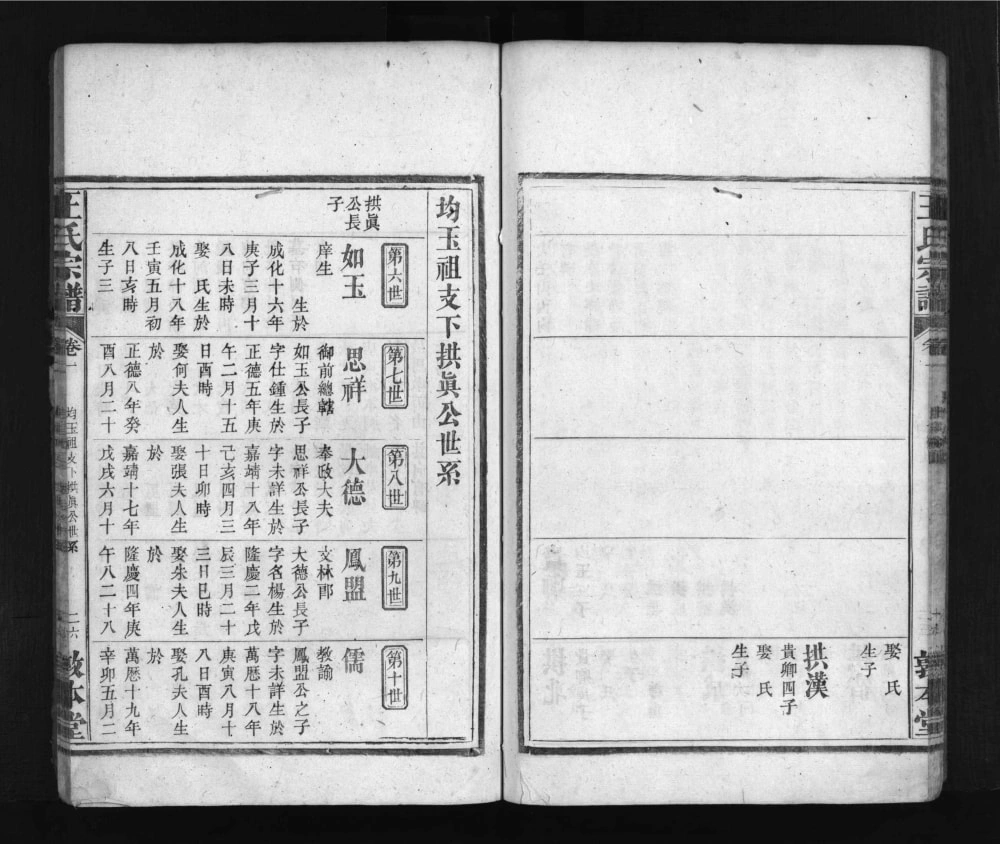 王氏宗譜
卷一
敦本堂
娶 氏
生子
拱漢
貴卿四子
娶 氏
生子
均玉祖支下拱眞公世系
拱眞
公長
子
第六世
如玉
庠生
生於
成化十六年
庚子三月十
八日未時
娶 氏生於
成化十八年
壬寅五月初
八日亥時
生子三
第七世
思祥
御前總轄
如玉公長子
字仕鍾生於
正德五年庚
午二月十五
日酉時
娶何夫人生
於
正德八年癸
酉八月二十
第八世
大德
奉政大夫
思祥公長子
字未詳生於
嘉靖十八年
己亥四月三
十日卯時
娶張夫人生
於
嘉靖十七年
戊戌六月十
第九世
鳳盟
文林郎
大德公長子
字名楊生於
隆慶二年戊
辰三月二十
三日巳時
娶朱夫人生
於
隆慶四年庚
午八月二十八
第十世
儒
教諭
鳳盟公之子
字未詳生於
萬曆十八年
庚寅八月十
八日酉時
娶孔夫人生
於
萬曆十九年
辛卯五月二
王氏宗譜
卷一
均玉祖支下拱眞公世系
二六
敦本堂